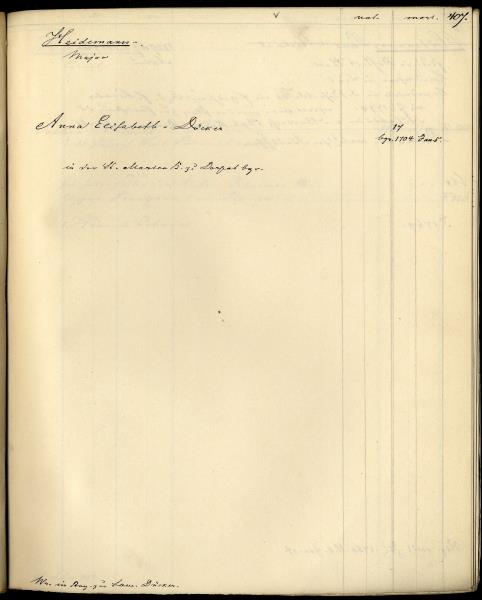 nat. mort. 407.
Heidemann.
Major
Anna Elisabeth v. Dücker
17
bgr. 1704 Jan 5.
in der St. Marien K. zu Dorpat bgr.
in zur Fam. Dücker.